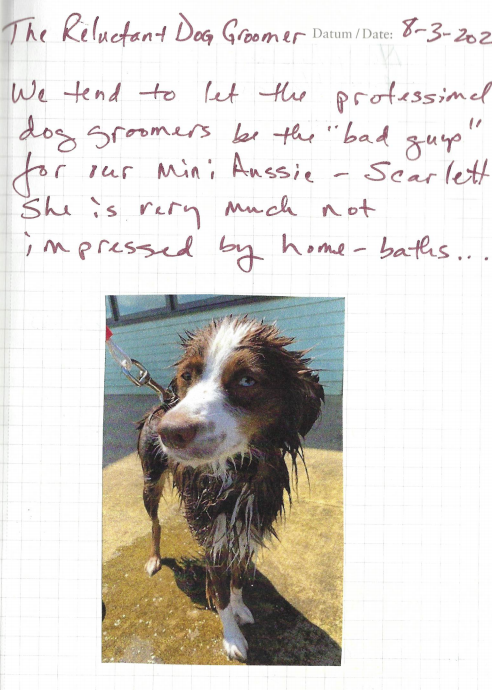 The Reluctant Dog Groomer Datum / Date: 8-3-202
We tend to let the professional
dog groomers be the "bad guys"
for our Mini Aussie - Scarlett
She is very much not
impressed by home-baths...